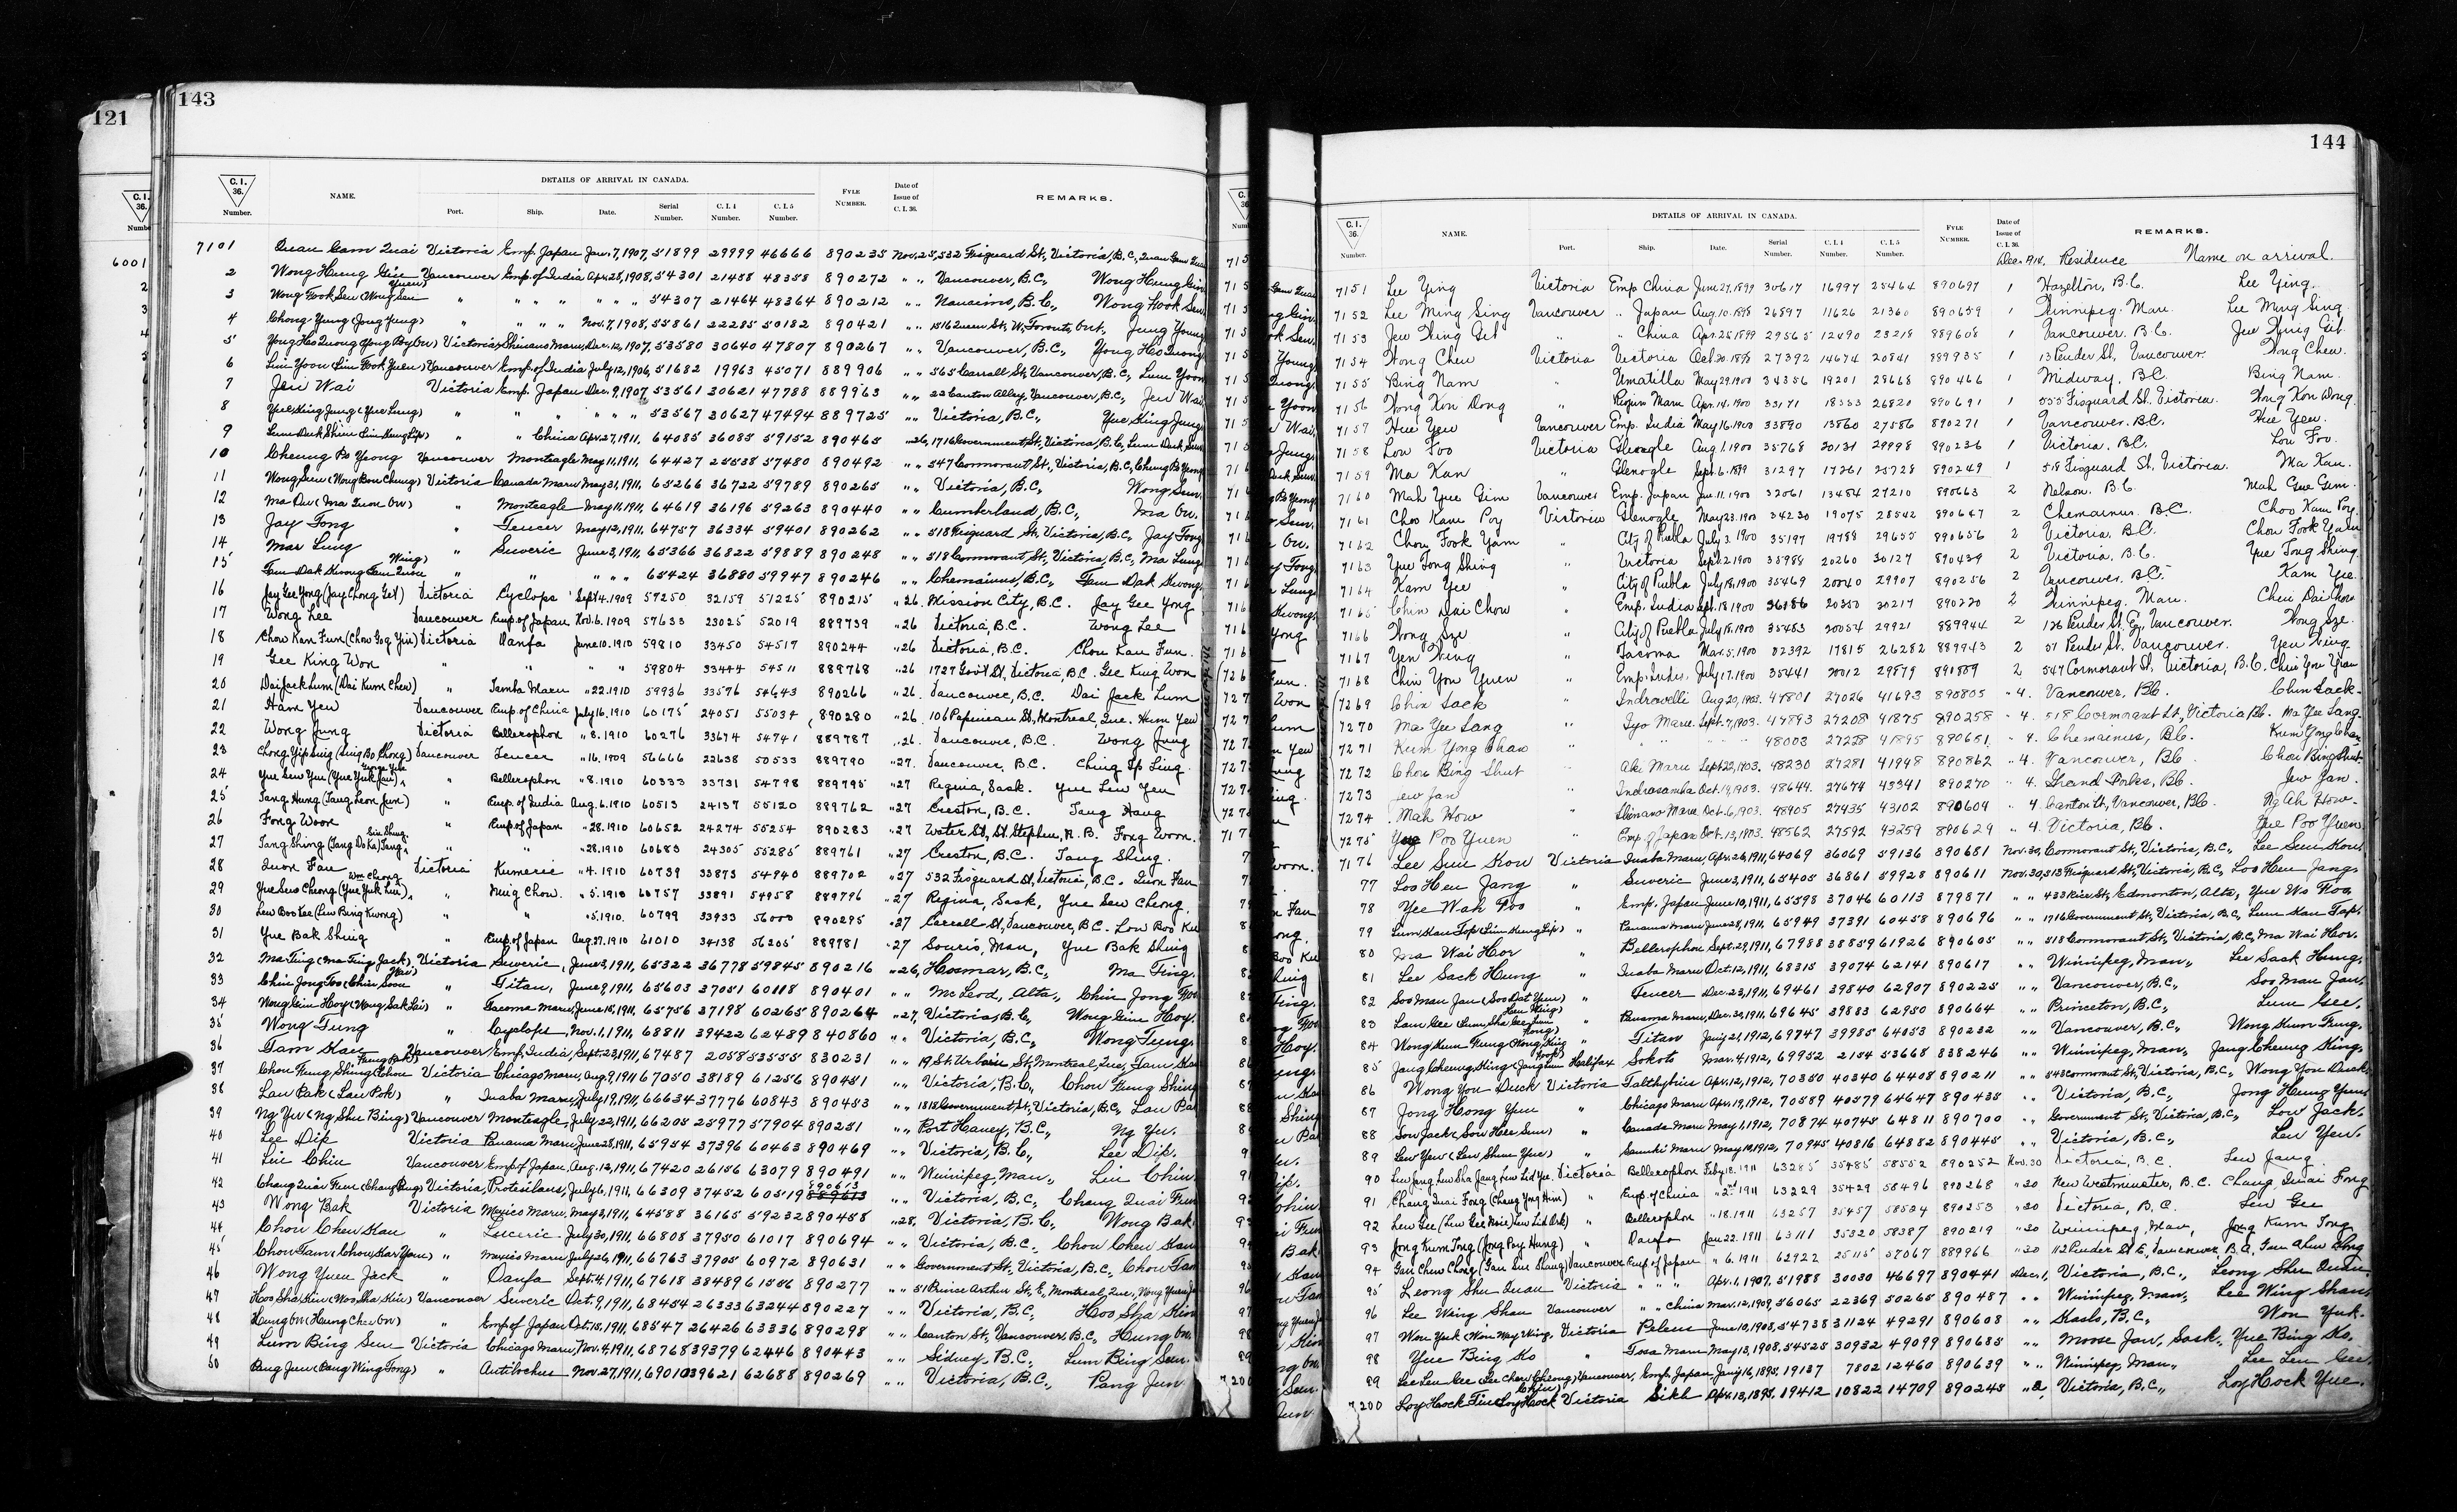 121
C. I. 36.
Numbe
6001
2
3
4
143
C. I. 36. Number.
NAME.
DETAILS OF ARRIVAL IN CANADA.
Port. Ship. Date. Serial Number. C. I. 4 Number. C. I. 5 Number.
FYLE NUMBER.
Date of Issue of C. I. 36.
REMARKS.
7101 Quan Gam Quai Victoria Emp. Japan Jan. 7, 1907, 51899 29999 46666 890235 Nov. 25, 532 Fisguard St., Victoria, B.C., Quan Gam Quai
2 Wong Hung Gin Vancouver Emp. of India Apr. 28, 1908, 54301 21458 48358 890272 " " Vancouver, B.C., Wong Hung Gin
3 Wong Fook Sen (Wong Sen Yuen) " " " " " " " 54307 21464 48364 890212 " " Nanaimo, B.C., Wong Fook Sen
4 Chong Yung (Jong Yung) " " " " Nov. 7, 1908, 55861 22285 50182 890421 " " 1516 Queen St., W. Toronto, Ont., Jung Young
5 Yong Hoo Quong (Yong By On) Victoria Shinano Maru, Dec. 12, 1907, 53580 30640 47807 890267 " " Vancouver, B.C., Yong Hoo Quong
6 Lim Yoon (Lim Fook Yuen) Vancouver Emp. of India July 12, 1906, 51682 19963 45071 889906 " " 565 Carrall St., Vancouver, B.C., Lum Yoon
7 Jeu Wai Victoria Emp. Japan Dec. 9, 1907, 53561 30621 47788 889963 " " 22 Canton Alley, Vancouver, B.C., Jeu Wai
8 Yue King Jung (Yue Lung) " " " " " " 53567 30627 47494 889725 " " Victoria, B.C., Yue King Jung
9 Lum Duk Shim (Lim Hung Lip) " " China Apr. 27, 1911, 64085 36085 59152 890465 " 26, 1716 Government St., Victoria, B.C., Lum Duk Sum
10 Cheung Bo Yeong Vancouver Monteagle May 11, 1911, 64427 25538 57480 890492 " " 547 Cormorant St., Victoria, B.C., Cheung B Yeong
11 Wong Sem (Wong Bon Chung) Victoria Canada Maru May 31, 1911, 65266 36722 59789 890265 " " Victoria, B.C., Wong Sem
12 Ma On (Ma Tum On) " Monteagle May 11, 1911, 64619 36196 59263 890440 " " Cumberland, B.C., Ma On.
13 Jay Fong " Teucer May 12, 1911, 64757 36334 59401 890262 " " 518 Fisguard St. Victoria, B.C., Jay Fong
14 Mar Lung " Suveric June 3, 1911, 65366 36822 59889 890248 " " 518 Cormorant St., Victoria, B.C., Ma Lung
15 Tam Dak Kwong (Tam Quon Wing) " " " " " 65424 36880 59947 890246 " " Chemainus, B.C., Tam Dak Kwong
16 Jay Gee Yong (Jay Chong Get) Victoria Cyclops Sept. 4. 1909 57250 32159 51225 890215 " 26. Mission City, B.C. Jay Gee Yong
17 Wong Lee Vancouver Emp. of Japan Nov. 6. 1909 57633 23025 52019 889739 " 26 Victoria, B.C. Wong Lee
18 Chow Kan Fun (Chow Gog Yin) Victoria Oanfa June 10. 1910 59810 33450 54517 890244 " 26 Victoria, B.C. Chow Kan Fun
19 Gee King Won " " " " 59804 33444 54511 889768 " 26 1727 Gov't St, Victoria, B.C. Gee King Won
20 Dai Jack Lum (Dai Kum Chew) " Tamba Maru " 22. 1910 59936 33576 54643 890266 " 26. Vancouver, B.C. Dai Jack Lum
21 Ham Yen Vancouver Emp of China July 16. 1910 60175 24051 55034 890280 " 26. 106 Papineau St, Montreal, Que. Hum Yen
22 Wong Jung Victoria Bellerophon " 8. 1910 60276 33674 54741 889787 " 26. Vancouver, B.C. Wong Jung
23 Chong Yip Luig (Luig Bo Chong) Vancouver Teucer " 16. 1909 56666 22638 50533 889790 " 27. Vancouver, B.C. Ching Ip Ling
24 Yue Lew Yue (Yue Yuk Jui) " Bellerophon " 8. 1910 60333 33731 54798 889795 " 27 Regina, Sask. Yue Lew Yen
25 Tang Hung (Tang Leon Jun) " Emp. of India Aug. 6. 1910 60513 24137 55120 889762 " 27 Creston, B.C. Tang Hang
26 Fong Woon " Emp of Japan " 28. 1910 60652 24274 55254 890283 " 27 Water St, St. Stephen, N.B. Fong Woon.
27 Tang Shing (Tang Do Ka) " " " 28. 1910 60683 24305 55285 889761 " 27 Creston, B.C. Tang Shing
28 Quon Fan Victoria Kumeric " 4. 1910 60739 33873 54940 889702 " 27 532 Fisguard St, Victoria, B.C. Quon Fan
29 Yue Seus Cheong (Yue Yuk Lun) Wm Cheong " Ning Chow. " 5. 1910 60757 33891 54958 889796 " 27 Regina, Sask, Yue Sew Cheong
30 Lew Boo Kee (Lew Bing Kwong) " " " 5. 1910. 60799 33933 56000 890295 " 27 Carrall St, Vancouver, B.C. Low Boo Ku
31 Yue Bak Shing Emp. of Japan Aug. 27. 1910 61010 34138 56205 889781 " 27 Souris, Man, Yue Bak Shing
32 Ma Ting (Ma Ting Jack), Victoria Suveric, June 3, 1911, 65322 36778 59845 890216 " 26, Hosmer, B.C., Ma Ting.
33 Chin Jong Foo (Chin Soon Wai) " Titan, June 9, 1911, 65603 37051 60118 890401 " " McLeod, Alta., Chin Jong Foo
34 Wong Gim Hoy (Wong Sak Lai) " Tacoma Maru, June 15, 1911, 65756 37198 60265 890264 " 27, Victoria, B.C., Wong Gim Hoy.
35 Wong Tung " Cyclops, Nov. 1, 1911, 68811 39422 62489 840860 " " Victoria, B.C., Wong Tung.
36 Tam Kau Vancouver Emp. India, Sept. 23, 1911, 67487 2058 53555 830231 " " 19 St. Urbain St., Montreal, Que., Tam Kau
37 Chou Fung Shing (Chou Fung Pak) Victoria Chicago Maru, Aug. 9, 1911 67050 38189 61256 890451 " " Victoria, B.C., Chou Fung Shing
38 Lau Pak (Lau Pok) " Inaba Maru, July 19, 1911, 66634 37776 60843 890453 " " 1818 Government St., Victoria, B.C., Lau Pak
39 Ng Yu (Ng Shu Bing) Vancouver Monteagle, July 22, 1911, 66205 25977 57904 890251 " " Port Haney, B.C., Ng Yu.
40 Lee Dip Victoria Panama Maru, June 28, 1911, 65954 37396 60463 890469 " " Victoria, B.C., Lee Dip.
41 Lin Chin Vancouver Emp. of Japan, Aug. 12, 1911, 67420 26156 63079 890491 " " Winnipeg, Man., Lin Chin
42 Chang Quai Fun (Chang Pung) Victoria, Protesilaus, July 6, 1911, 66309 37452 60519 890613 " " Victoria, B.C., Chang Quai Fun
43 Wong Bak Victoria Mexico Maru, May 3, 1911, 64588 36165 59232 890458 " 28, Victoria, B.C., Wong Bak
44 Chou Chen Kau " Luceric, July 30, 1911, 66808 37950 61017 890694 " " Victoria, B.C., Chou Chen Kau
45 Chow Tam (Chow Kar Yam) " Mexico Maru July 26, 1911, 66763 37905 60972 890631 " " Government St., Victoria, B.C., Chow Tam
46 Wong Yuen Jack " Oanfa Sept. 4, 1911, 67618 38489 61556 890277 " " 51 Prince Arthur St., E, Montreal, Que., Wong Yuen J
47 Hoo Sha Kin (Woo Sha Kin) Vancouver Suveric Oct. 9, 1911, 68454 26333 63244 890227 " " Victoria, B.C., Hoo Sha Kin
48 Hung On (Hung Chee On) " Emp. of Japan Oct. 15, 1911, 68547 26426 63336 890298 " " Canton St., Vancouver B.C., Hung On.
49 Lum Bing Sun Victoria Chicago Maru, Nov. 4, 1911, 68768 39379 62446 890443 " " Sidney, B.C., Lum Bing Sun.
50 Pang Jun (Pang Wing Tong) " Antilochus Nov. 27, 1911, 69010 39621 62688 890269 " " Victoria, B.C., Pang Jun
144
C. I. 36. Number.
NAME.
DETAILS OF ARRIVAL IN CANADA.
Port. Ship. Date. Serial Number. C. I. 4 Number. C. I. 5 Number.
FYLE NUMBER.
Date of Issue of C. I. 36.
REMARKS.
Dec. 1911. Residence Name on arrival.
7151 Lee Ying Victoria Emp China June 27, 1899 30617 16997 25464 890697 1 Hazelton, B.C. Lee Ying.
7152 Lee Ming Sing Vancouver " Japan Aug. 10. 1898 26897 11626 21360 890659 1 Winnipeg. Man. Lee Ming Sing
7153 Jew Hing Git " China Apr. 25, 1899 29565 12490 23218 889608 1 Vancouver. B.C. Jew Hing Git.
7154 Wong Chew Victoria Victoria Oct. 20. 1898 27392 14674 20841 889935 1 13 Pender St, Vancouver. Wong Chew.
7155 Bing Nam " Umatilla May 29. 1900 34356 19201 28668 890466 1 Midway. B.C Bing Nam.
7156 Wong Kon Dong " Riojun Maru Apr. 14. 1900 33171 18353 26820 890691 1 555 Fisguard St. Victoria. Wong Kon Dong.
7157 Hue Yen Vancouver Emp. India May 16. 1900 33890 13860 27586 890271 1 Vancouver. B.C. Hue Yen.
7158 Lou Foo Victoria Glenogle Aug. 1. 1900 35768 20131 29998 890236 1 Victoria. B.C. Lou Foo.
7159 Ma Kan " Glenogle Sept. 6. 1899 31297 17261 25728 890249 1 518 Fisguard St, Victoria. Ma Kan.
7160 Mah Yue Gim Vancouver Emp. Japan Jan. 11. 1900 32061 13484 27210 890663 2 Nelson. B.C. Mah Gue Gim.
7161 Choo Kam Poy Victoria Glenogle May 23. 1900 34230 19075 28542 890647 2 Chemainus. B.C. Choo Kam Poy.
7162 Chow Fook Yam " City of Puebla July 3. 1900 35197 19788 29655 890656 2 Victoria. B.C. Chow Fook Yam
7163 Yue Tong Shing " Victoria Sept. 2. 1900 35988 20260 30127 890439 2 Victoria. B.C. Yue Tong Shing.
7164 Kam Yee " City of Puebla July 18, 1900 35469 20040 29907 890256 2 Vancouver. B.C. Kam Yee.
7165 Chin Dai Chow " Emp. India Sept. 18. 1900 36186 20350 30217 890220 2 Winnipeg. Man. Chin Dai Chow
7166 Wong Sze " City of Puebla July 18. 1900 35483 20054 29921 889944 2 126 Pender St. E, Vancouver. Wong Sze.
7167 Yen Wing " Tacoma Mar. 5. 1900 32392 17815 26282 889943 2 51 Pender St. Vancouver. Yen Wing.
7168 Chin You Yuen " Emp. India. July 17. 1900 35441 20012 29879 891889 2 547 Cormorant St, Victoria, B.C. Chin You Yuen
7269 Chin Sack " Indravelli Aug 20, 1903. 47801 27026 41693 890805 " 4. Vancouver, B.C. Chin Sack.
7270 Ma Yee Lang " Iyo Maru Sept. 7, 1903. 47893 27208 41875 890258 " 4. 518 Cormorant St., Victoria B.C. Ma Yee Lang.
7271 Kum Yong Chan " " 48003 27228 41895 890651 " 4. Chemainus, B.C. Kum Yong Chan
7272 Chou Bing Shut Aki Maru Sept 22, 1903. 48230 27281 41948 890862 " 4. Vancouver, B.C. Chou Bing Shut.
7273 Jew Jan Indrasamha Oct. 14, 1903. 48644 27674 43341 890270 " 4. Grand Forks, B.C. Jew Jan.
7274 Mah How Shinano Maru Oct. 6, 1903. 48405 27435 43102 890604 " 4. Canton St, Vancouver, B.C. Ng Ah How.
7275 Yue Poo Yuen Emp. of Japan Oct. 13, 1903. 48562 27592 43259 890629 " 4. Victoria, B.C. Yue Poo Yuen
7176 Lee Sun Kou Victoria Inaba Maru, Apr. 26, 1911, 64069 36069 59136 890681 Nov. 30, Cormorant St., Victoria, B.C., Lee Sun Kou.
77 Loo Hen Jang " Suveric June 3, 1911, 65405 36861 59928 890611 Nov. 30, 513 Fisguard St., Victoria, B.C., Loo Hen Jang.
78 Yee Wah Foo " Emp. Japan June 10, 1911, 65598 37046 60113 879871 " " 433 Rice St., Edmonton, Alta., Yue Wo Foo.
79 Lum Kau Tap (Lim Hung Lip) " Panama Maru June 28, 1911, 65949 37391 60458 890696 " " 1716 Government St., Victoria, B.C., Lum Kau Tap.
80 Ma Wai Hor " Bellerophon Sept. 29, 1911, 67988 38859 61926 890605 " " 518 Cormorant St., Victoria, B.C., Ma Wai Hor.
81 Lee Sack Hung " Inaba Maru Oct. 12, 1911, 68315 39074 62141 890617 " " Winnipeg, Man., Lee Sack Hung.
82 Soo Man Jan (Soo Dat Yuen) " Teucer Dec. 23, 1911, 69461 39840 62907 890225 " " Vancouver, B.C., Soo Man Jan.
83 Lam Gee " Panama Maru, Dec. 30, 1911, 69645 39883 62950 890664 " " Princeton, B.C., Lum Gee.
84 Wong Kum Fung " Titan Jany 21, 1912, 69747 39985 64053 890232 " " Vancouver, B.C., Wong Kum Fung.
85 Jang Cheung King Halifax Sokoto Mar. 4, 1912, 69952 2154 53668 838246 " " Winnipeg, Man., Jang Cheung King.
86 Wong You Duck Victoria Talthybius Apr. 12, 1912, 70350 40340 64408 890211 " " 543 Cormorant St., Victoria, B.C., Wong You Duck.
87 Jong Hong Yuu " Chicago Maru Apr. 19, 1912, 70589 40579 64647 890435 " " Victoria, B.C., Jong Hung Yuu
88 Sow Jack (Sow Hee Sun) " Canada Maru May 1, 1912, 70874 40745 64811 890700 " " Government St., Victoria, B.C., Low Jack.
89 Lew Yew (Lew Shum Yew) " Sanuki Maru May 10, 1912, 70945 40816 64882 890445 " " Victoria, B.C., Leu Yeu.
90 Lew Jang Victoria Bellerophon Feby. 18. 1911 63285 35485 58552 890252 Nov. 30 Victoria, B.C. Lew Jang
91 Chang Quai Fong (Chang Yng Him) " Emp. of China " 2nd 1911 63229 35429 58496 890268 " 30 New Westminster, B.C. Chang Quai Fong
92 Lew Gee Bellerophon " 18. 1911 63257 35457 58524 890253 " 30 Victoria, B.C. Lew Gee
93 Jong Kum Tong (Jong Poy Hung) " Oanfa Jan 22. 1911 63111 35320 58387 890219 " 30 Winnipeg, Man, Jong Kum Tong
94 Gan Chew Chong Vancouver Emp. of Japan " 6. 1911 62922 25115 57067 889966 " 30 112 Pender St E, Vancouver, B.C,
95 Leong Shu Quan Victoria " " " Apr. 1, 1907, 51988 30030 46697 890441 Dec. 1, Victoria, B.C., Leong Shu Quan
96 Lee Wing Shau Vancouver " " China Mar. 12, 1909, 56065 22369 50265 890487 " " Winnipeg, Man., Lee Wing Shau.
97 Won Yuk (Won May Wing, Victoria Peleus June 10, 1908, 54738 31124 49291 890608 " " Kaslo, B.C., Won Yuk.
98 Yue Bing Ko " Tosa Maru May 13, 1908, 54525 30932 49099 890685 " " Moose Jaw, Sask., Yue Bing Ko.
99 Lee Len Gee (Lee Chew Cheong) Vancouver, Emp. Japan Jany 16, 1895, 19137 7802 12460 890639 " " Winnipeg, Man., Lee Len Gee.
7200 Loy Hock Victoria Sikh Apr. 13, 1895, 19412 10822 14709 890245 " 2, Victoria, B.C., Loy Hock Yue.